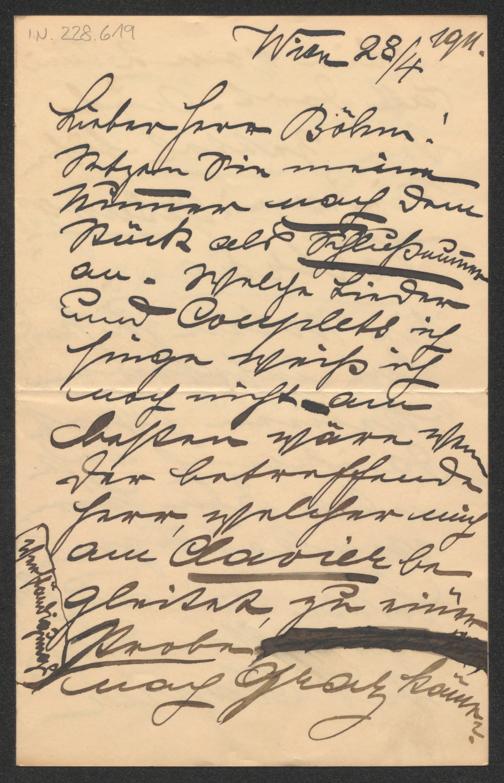 I.N. 228.619
Wien 28/4 1911.
Lieber Herr Böhm!
Setzen Sie meine
Nummer nach dem
Stück als Schlußnummer
an. Welche Lieder
und Couplets ich
singe weiß ich
noch nicht am
besten wäre wenn
der betreffende
Herr, welcher mich
am Clavier be
gleitet, zu einer
Probe
nach Graz käme?